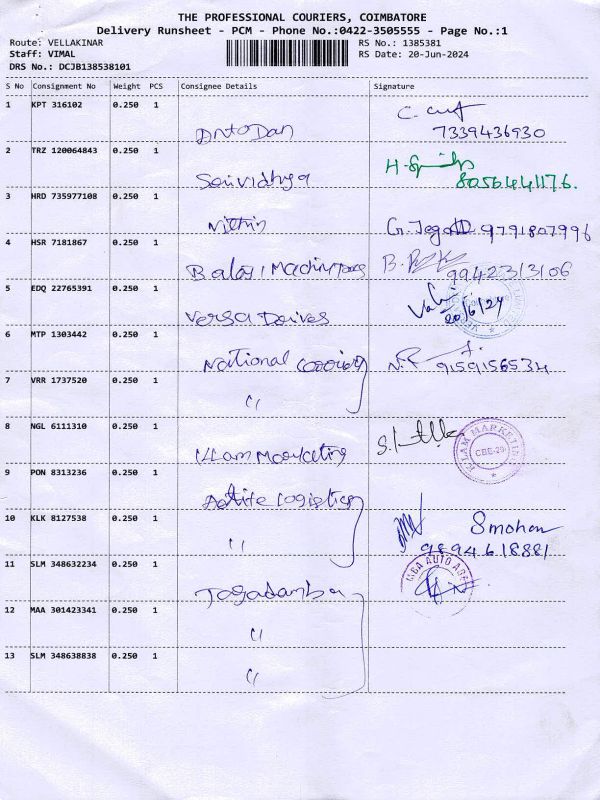 THE PROFESSIONAL COURIERS, COIMBATORE
Delivery Runsheet - PCM - Phone No.:0422-3505555 - Page No.:1
Route: VELLAKINAR RS No.: 1385381
Staff: VIMAL RS Date: 20-Jun-2024
DRS No.: DCJB138538101
S No Consignment No Weight PCS Consignee Details Signature
1 KPT 316102 0.250 1
7339436930
2 TRZ 120064843 0.250 1 Srividhya
8056441176.
3 HRD 735977108 0.250 1 Nithin G. Jega 9791807996
4 HSR 7181867 0.250 1 Balaji Machine Tools B. 9942313106
5 EDQ 22765391 0.250 1 Versa Drives 20/6/24
6 MTP 1303442 0.250 1 National Courier 9159156534
7 VRR 1737520 0.250 1 "
8 NGL 6111310 0.250 1 Ilam Marketing S.
ILAM MARKETING
CBE-29
9 PON 8313236 0.250 1 Active Logistics
10 KLK 8127538 0.250 1 " Smohan
9894618881
11 SLM 348632234 0.250 1 Jagadamba
AUTO
12 MAA 301423341 0.250 1 "
13 SLM 348638838 0.250 1 "